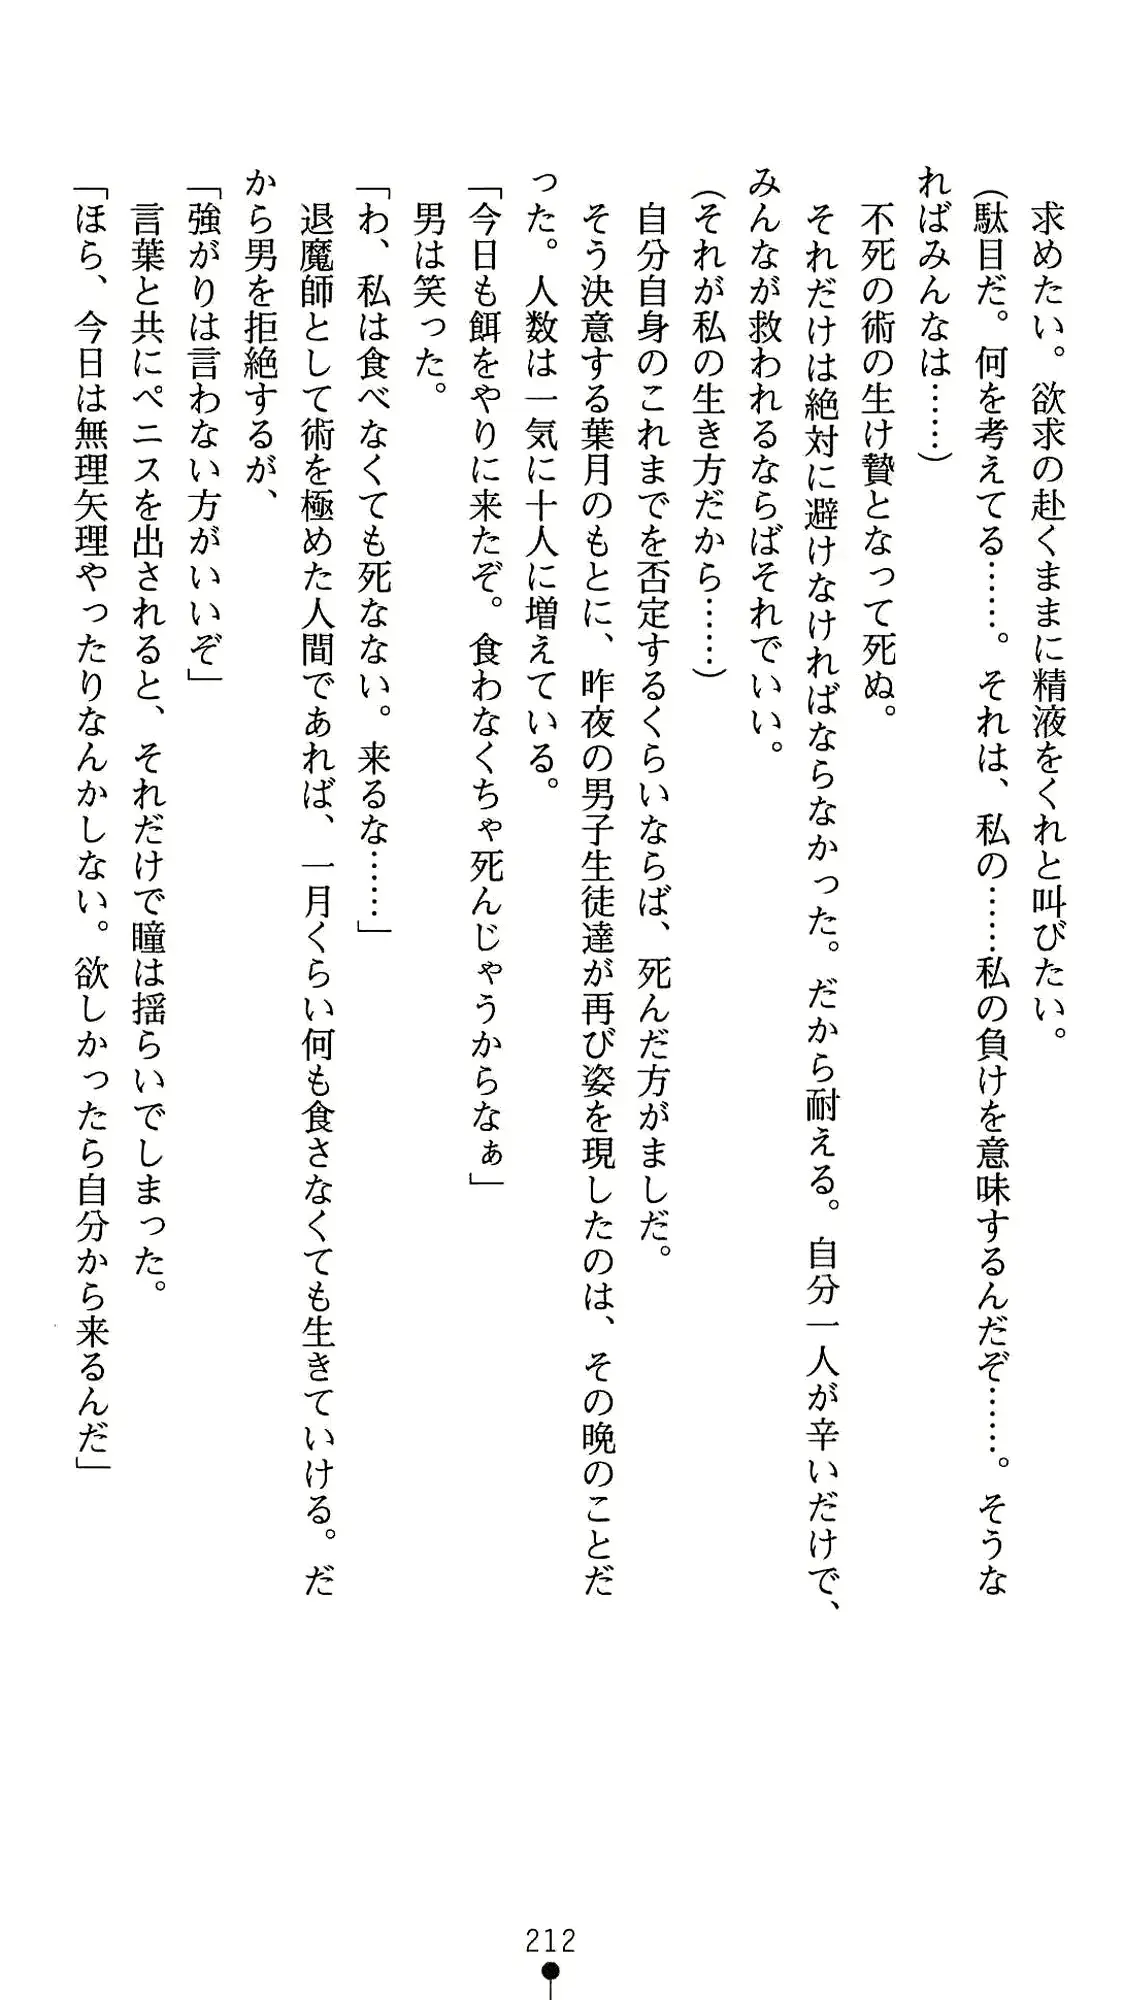 求めたい。欲求の赴くままに精液をくれと叫びたい。
(駄目だ。何を考えてる……。それは、私の……私の負けを意味するんだぞ……。そうな
ればみんなは……)
不死の術の生け贄となって死ぬ。
それだけは絶対に避けなければならなかった。だから耐える。自分一人が辛いだけで、
みんなが救われるならばそれでいい。
(それが私の生き方だから……)
自分自身のこれまでを否定するくらいならば、死んだ方がましだ。
そう決意する葉月のもとに、昨夜の男子生徒達が再び姿を現したのは、その晩のことだ
った。人数は一気に十人に増えている。
「今日も餌をやりに来たぞ。食わなくちゃ死んじゃうからなぁ」
男は笑った。
「わ、私は食べなくても死なない。来るな……」
退魔師として術を極めた人間であれば、一月くらい何も食さなくても生きていける。だ
から男を拒絶するが、
「強がりは言わない方がいいぞ」
言葉と共にペニスを出されると、それだけで瞳は揺らいでしまった。
「ほら、今日は無理矢理やったりなんかしない。欲しかったら自分から来るんだ」
212